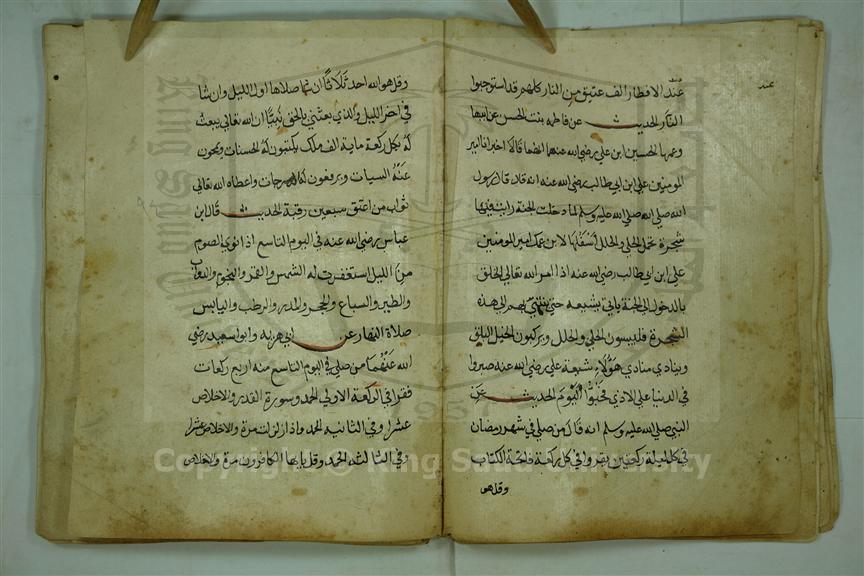 عند
عند الافطار الف عتيق من النار كلهم قد استوجبوا
النار الحديث عن فاطمه بنت الحسن عن ابيها
وعمها الحسين ابن علي رضي الله عنهما انهما قالا اخبرنا امير
المومنين علي ابن ابي طالب رضي الله عنه انه قال قال رسول
الله صلي الله عليه وسلم لما دخلت الجنة رايت فيها
شجرة تحمل الحلي والحلل اسفلها لابن عمك امير المومنين
علي ابن ابي طالب رضي الله عنه اذا امر الله تعالي الخلق
بالدخول الي الجنة ياتي بشيعه حتي ينتهي بهم الي هذه
الشجرة فلبسون الحلي والحلل ويركبون الخيل البلق
وينادي منادي هؤلاء شيعة علي رضي الله عنه صبروا
في الدنيا علي الاذي اليوم الحديث عن
النبي صلي الله عليه وسلم انه قال من صلي في شهر رمضان
في كل ليلة ركعتين يقروا في كل ركعة فاتحة الكتاب
وقل هو
وقل هو الله احد ثلاثا ان شا صلاها اول الليل وان شا
في اخر الليل والذي بعثني بالحق نبيا ان الله تعالي يبعث
له بكل ركعة ماية الف ملك يكتبون له الحسنات ويمحون
عنه السيات ويرفعون له الدرجات واعطاه الله تعالي
ثواب من اعتق سبعين رقبة الحديث قال ابن
عباس رضي الله عنه في اليوم التاسع اذا نوي الصوم
من الليل استغفرت له الشمس والقمر والنجوم والدواب
والطير والسباع والحجر والمدر والرطب واليابس
صلاة النهار عن ابي هريره وابو سعيد رضي
الله عنهما من صلي في اليوم التاسع منه اربع ركعات
فقرا في الركعة الاولي الحمد وسورة القدر والاخلاص
عشرا وفي الثانيه الحمد واذا زلزلت مرة والاخلاص عشرا
وفي الثالثه الحمد وقل يايها الكافرون مرة والاخلاص
Copyright © King Saud University
1957